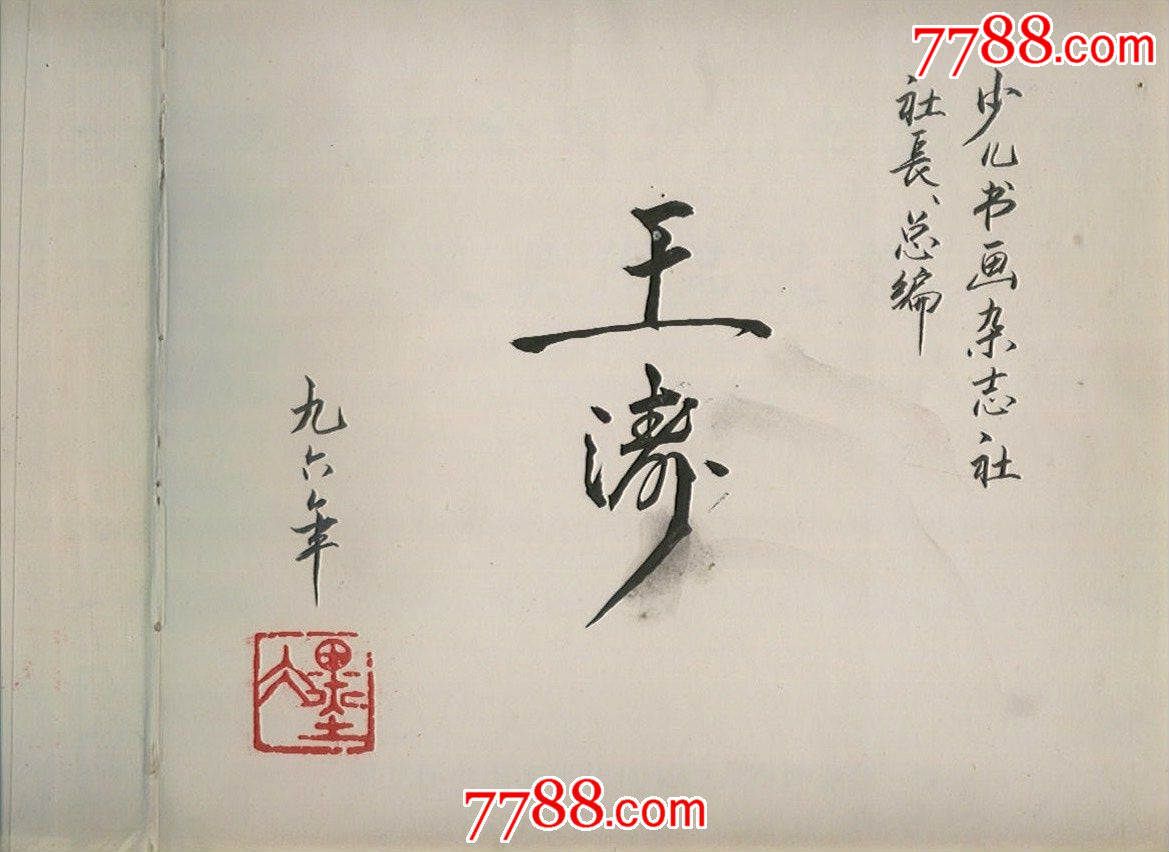 7788.com
少儿书画杂志社
社長、总编
王涛
九六年
墨
7788.com